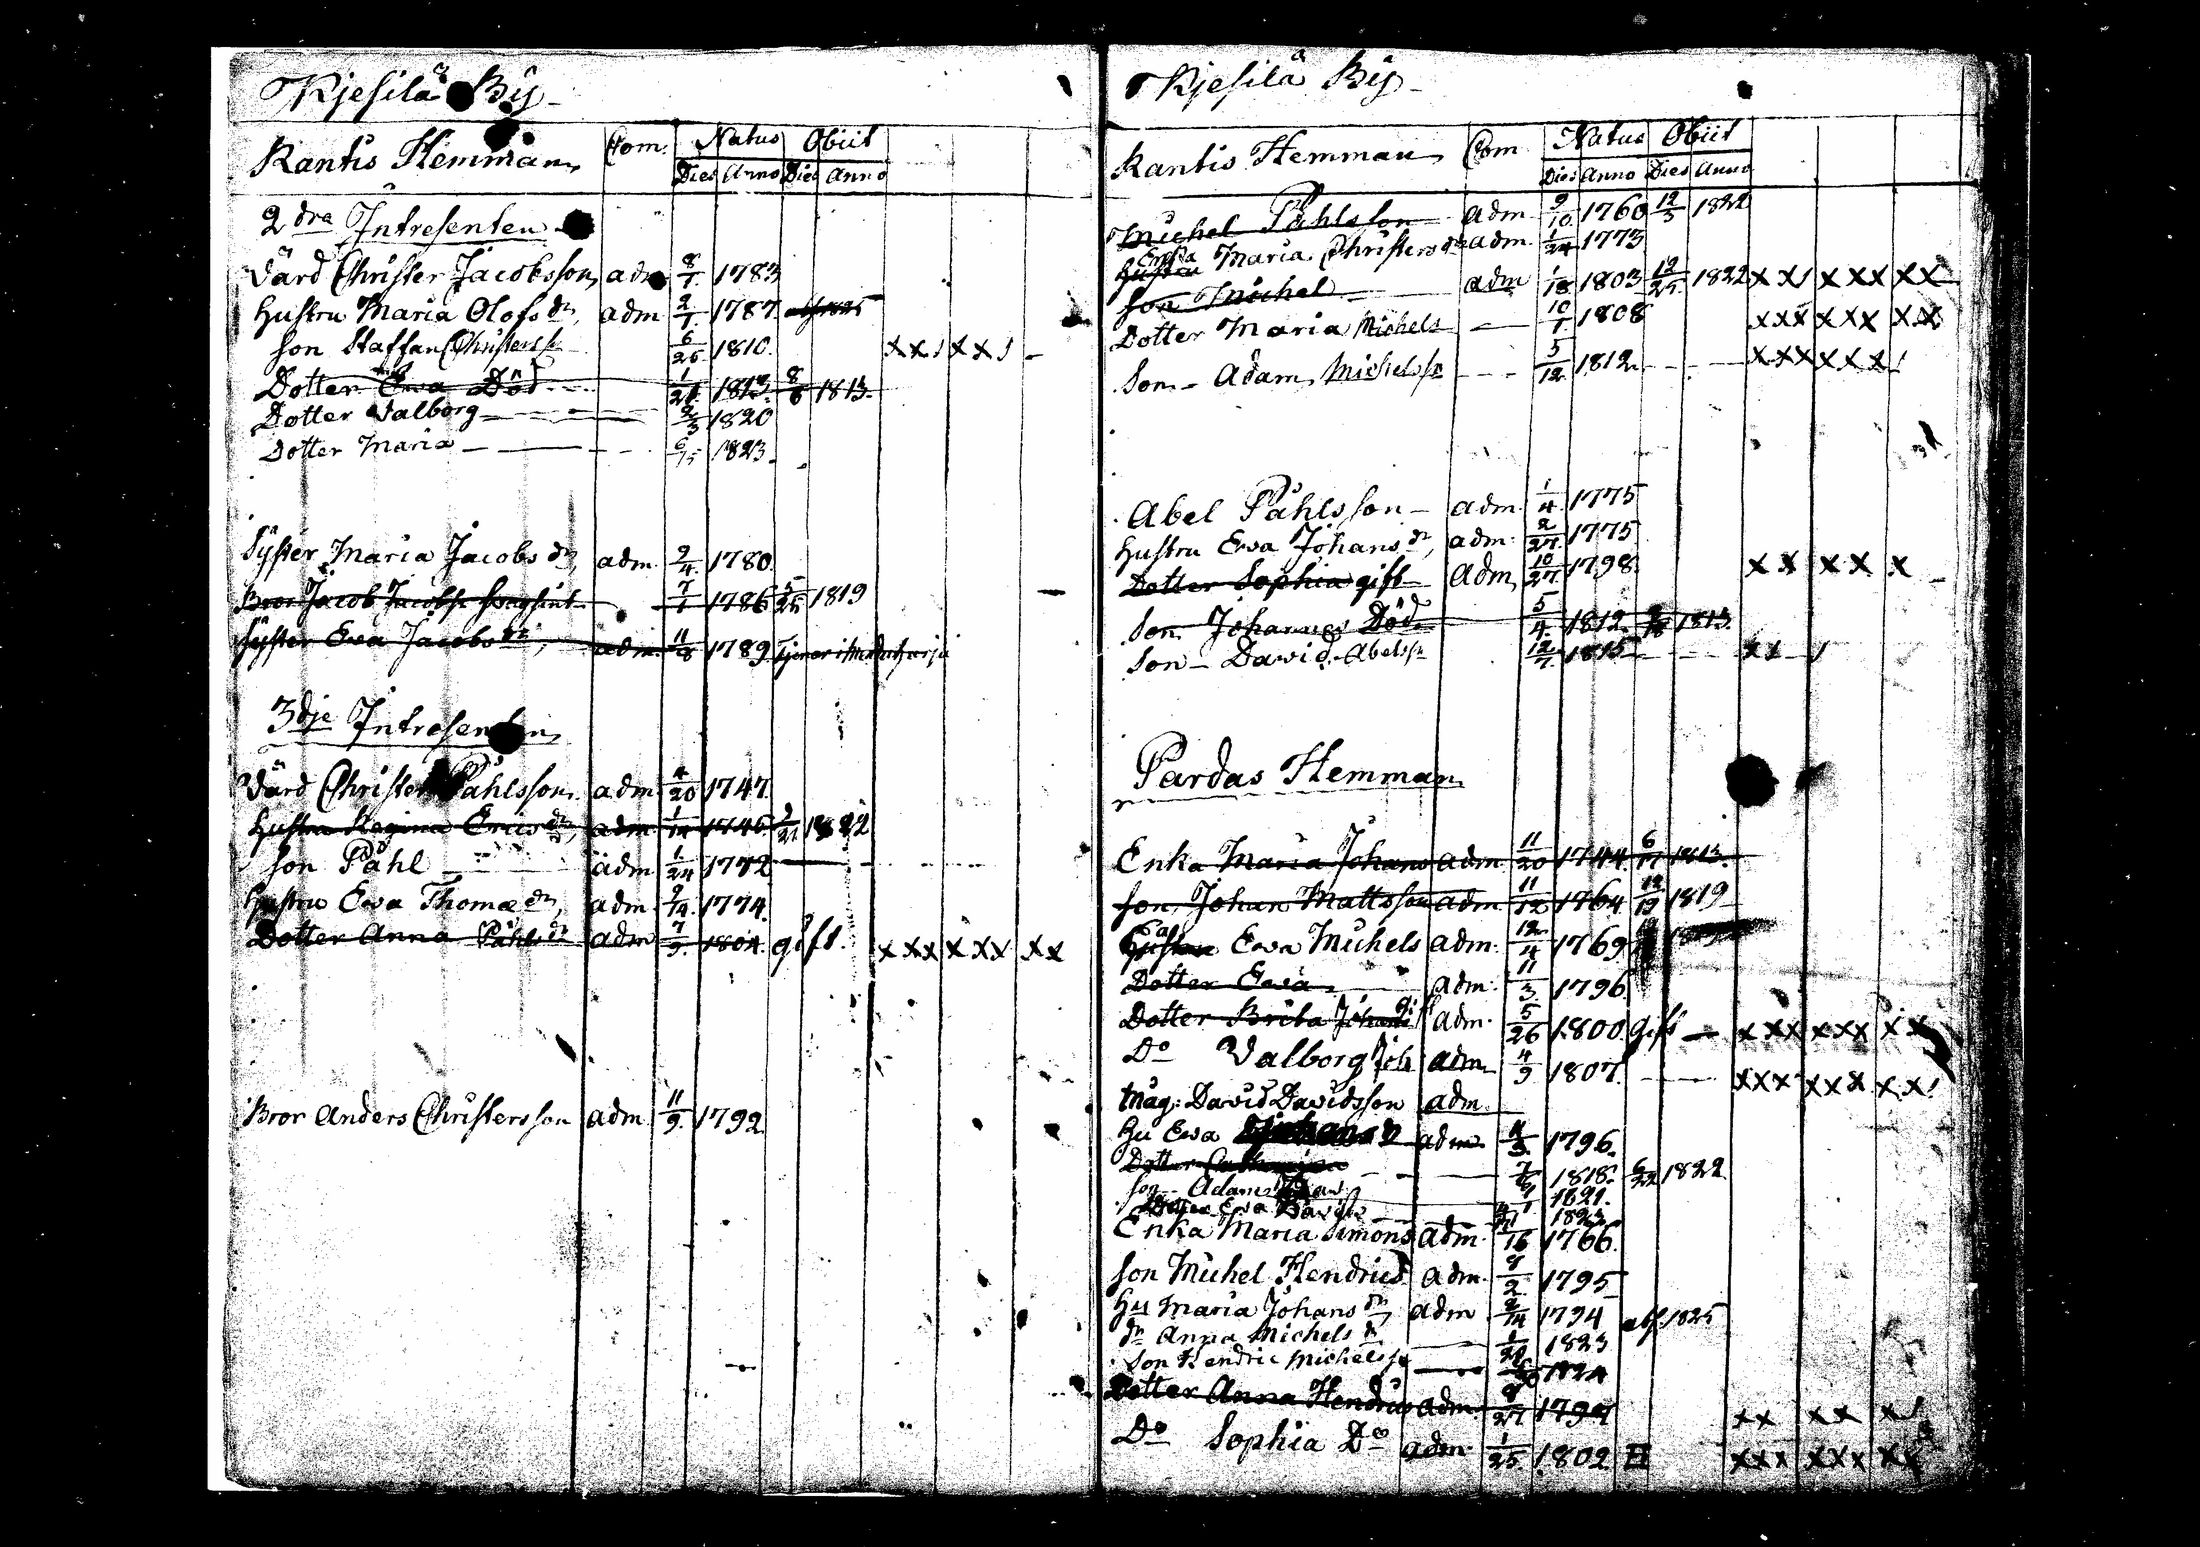 Kjesilä By
Kantis Hemman Com. Natus Obiit
Dies Anno Dies Anno
2dra Intresenten
Värd Christer Jacobsson adm 8/7 1783
Hustru Maria Olofsdr adm 2/7 1787
Son Staffan Christerss 6/26 1810 xx/ xx/
Dotter Ewa Död 1/21 1813 8/8 1813
Dotter Valborg 2/3 1820
Dotter Maria 6/15 1823
Syster Maria Jacobsdr adm. 9/4 1780
Bror Jacob Jacobss 7/1 1786 5/25 1819
Syster Ewa Jacobsdr adm. 11/8 1789 Tjener i
3dje Intresenten
Värd Christer Påhlsson adm 4/20 1747
Hustru Regina Ericsdr adm 1/14 1746 2/21 1822
Son Påhl adm 1/24 1772
Hustru Ewa Thomædr adm 9/14 1774
Dotter Anna Påhlsdr adm 7/9 1804 gift. xxx xxx xx
Bror Anders Christersson adm 11/9 1792
Kjesilä By
Kantis Hemman Com Natus Obiit
Dies Anno Dies Anno
Michel Påhlsson adm 9/10 1760 12/5 1822
Enka
Hustru Maria Christersdr adm. 1/24 1773
Son Michel adm 1/18 1803 12/25 1822 xx/ xxx xx
Dotter Maria Michels 10/7 1808 xxx xxx xx
Son Adam Michelss 5/12 1812 xxx xxx/
Abel Påhlsson adm. 1/4 1775
Hustru Ewa Johansdr adm. 2/27 1775
Dotter Sophia gift adm 10/27 1798 xx xx x
Son Johannes Död 5/4 1812 1813
Son David Abelss 12/7 1815 xx /
Pardas Hemman
Enka Maria Johans adm 11/20 1744 6/17 1813
Son Johan Mattsson adm 11/12 1764 12/19 1819
Hustru Ewa Michels adm. 12/4 1769
Dotter Ewa adm. 11/3 1796
Dotter Brita Johans adm. 5/26 1800 gift xxx xxx xx
Do Valborg Joh adm 4/9 1807 xxx xxx xx/
Måg: David Davidsson adm
Hu Ewa adm 11/3 1796
Dotter 7/6 1818 6/22 1822
Son Adam 1821
Dotter Ewa 1823
Enka Maria Simons adm /16 1766
Son Michel Hendrics adm. 9/2 1795
Hu Maria Johansdr adm 2/14 1794 abs. 1825
dr Anna Michelsdr 1823
Son Hendric Michelss 1824
Dotter Anna Hendrics adm 8/27 1797 xx xx x/
Do Sophia Do adm 1/25 1802 xxx xxx xx